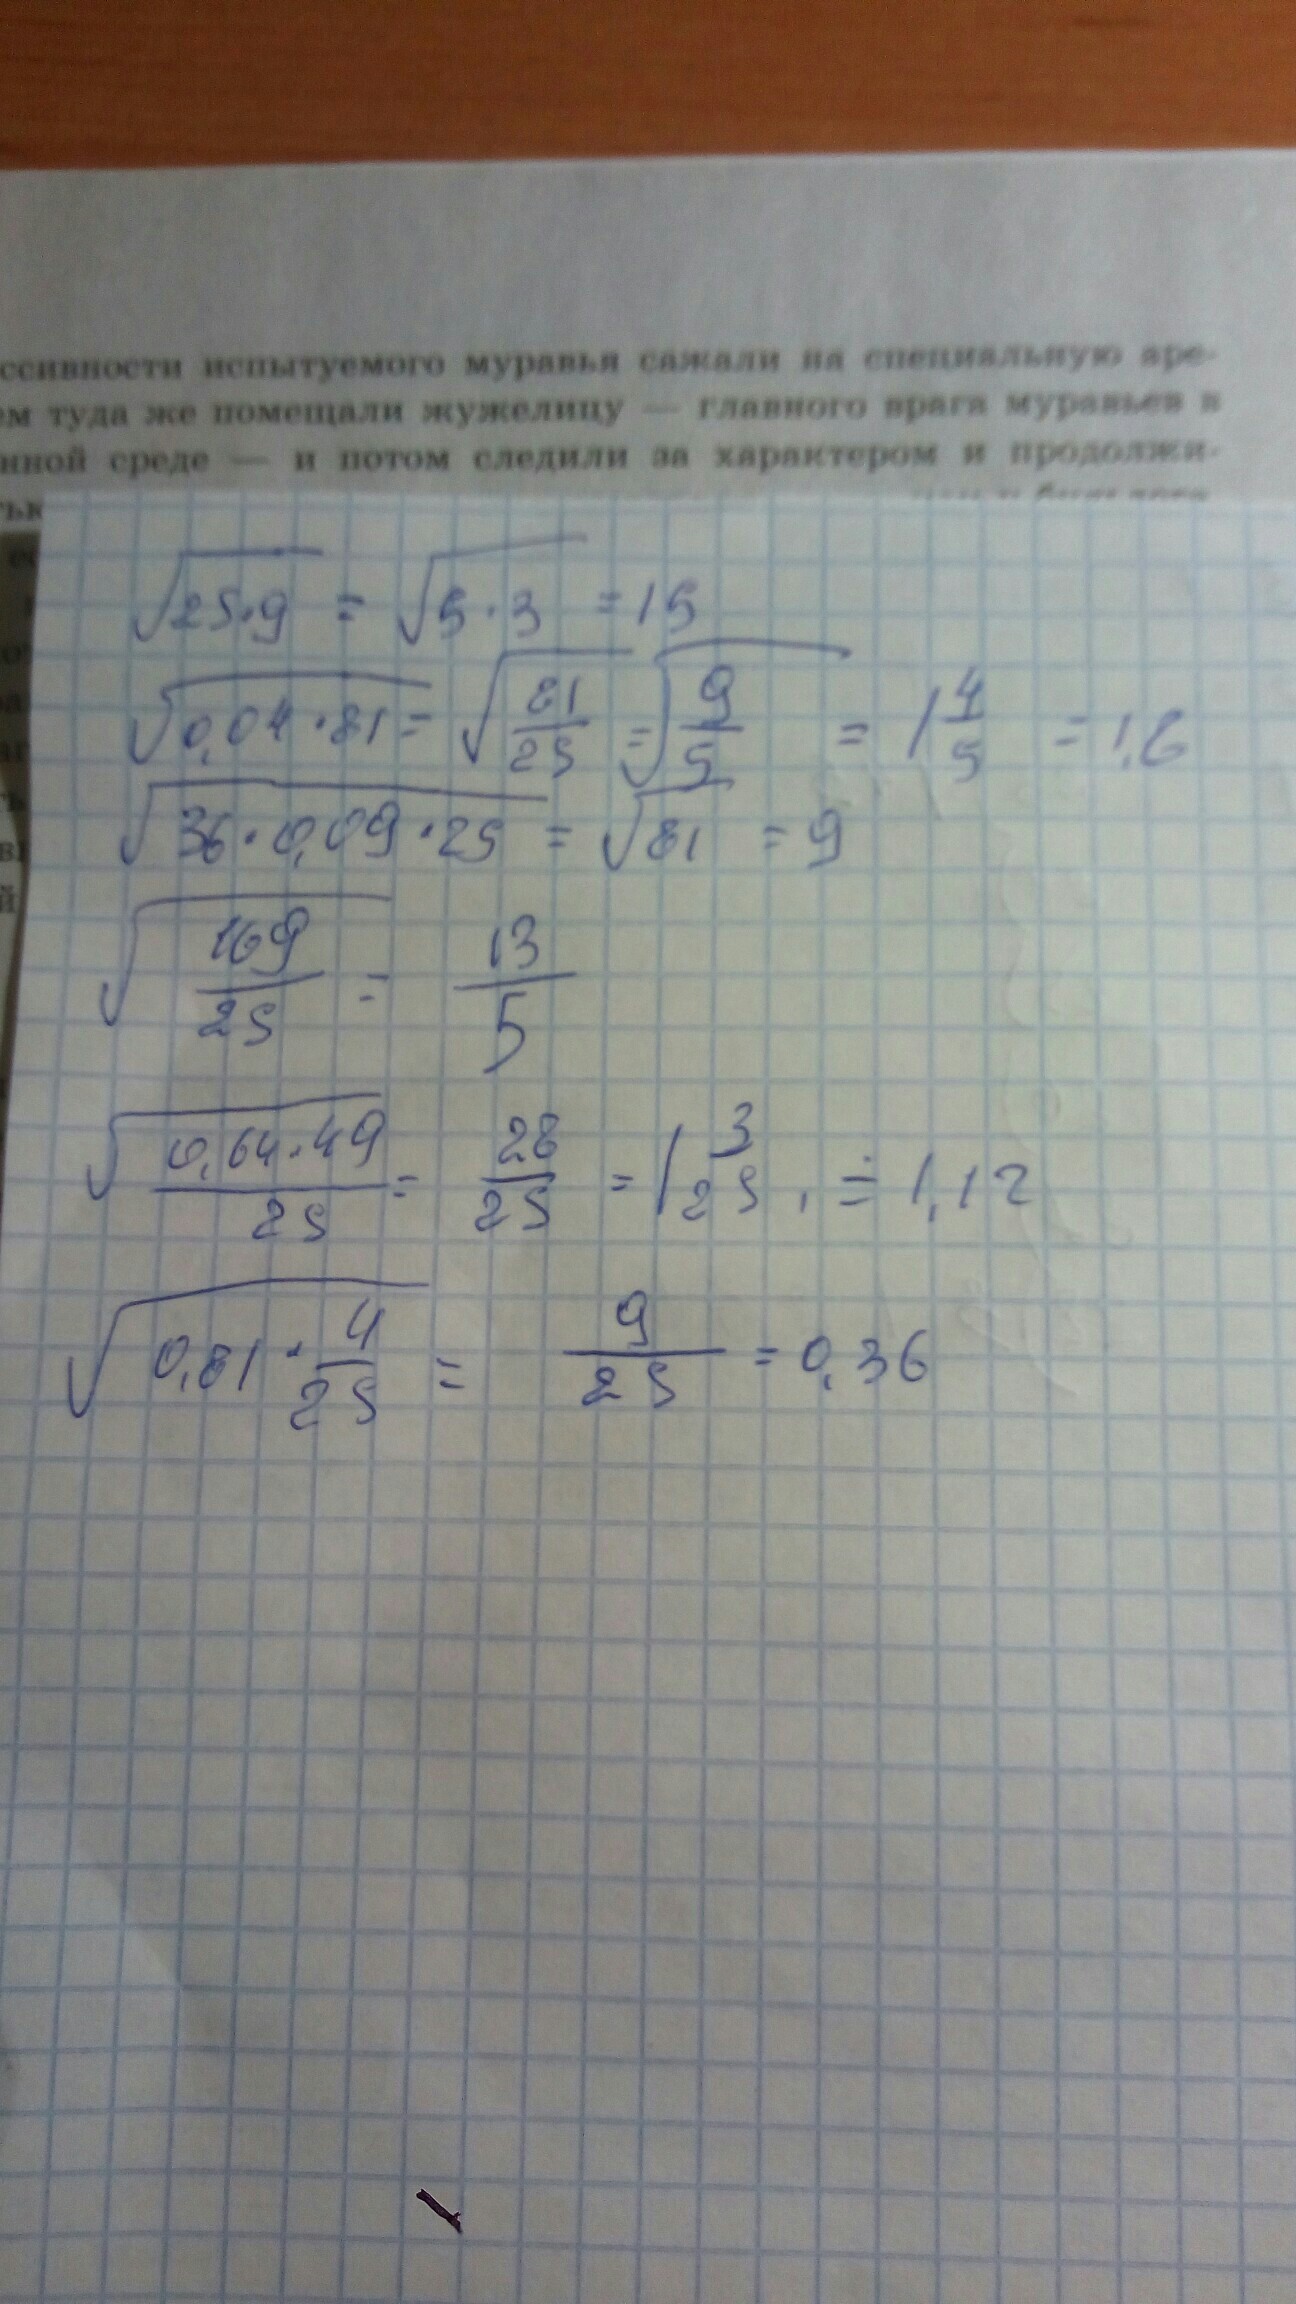 ссивности испытуемого муравья сажали на специальную аре-
ем туда же помещали жужелицу — главного врага муравьев в
нной среде — и потом следили за характером и продолжи-
√25·9 = √5·3 = 15
√0,04·81 = √81/25 = √9/5 = 1 4/5 = 1,8
√36·0,09·25 = √81 = 9
√169/25 = 13/5
√0,64·49/25 = 28/25 = 1 3/25 , = 1,12
√0,81·4/25 = 9/25 = 0,36